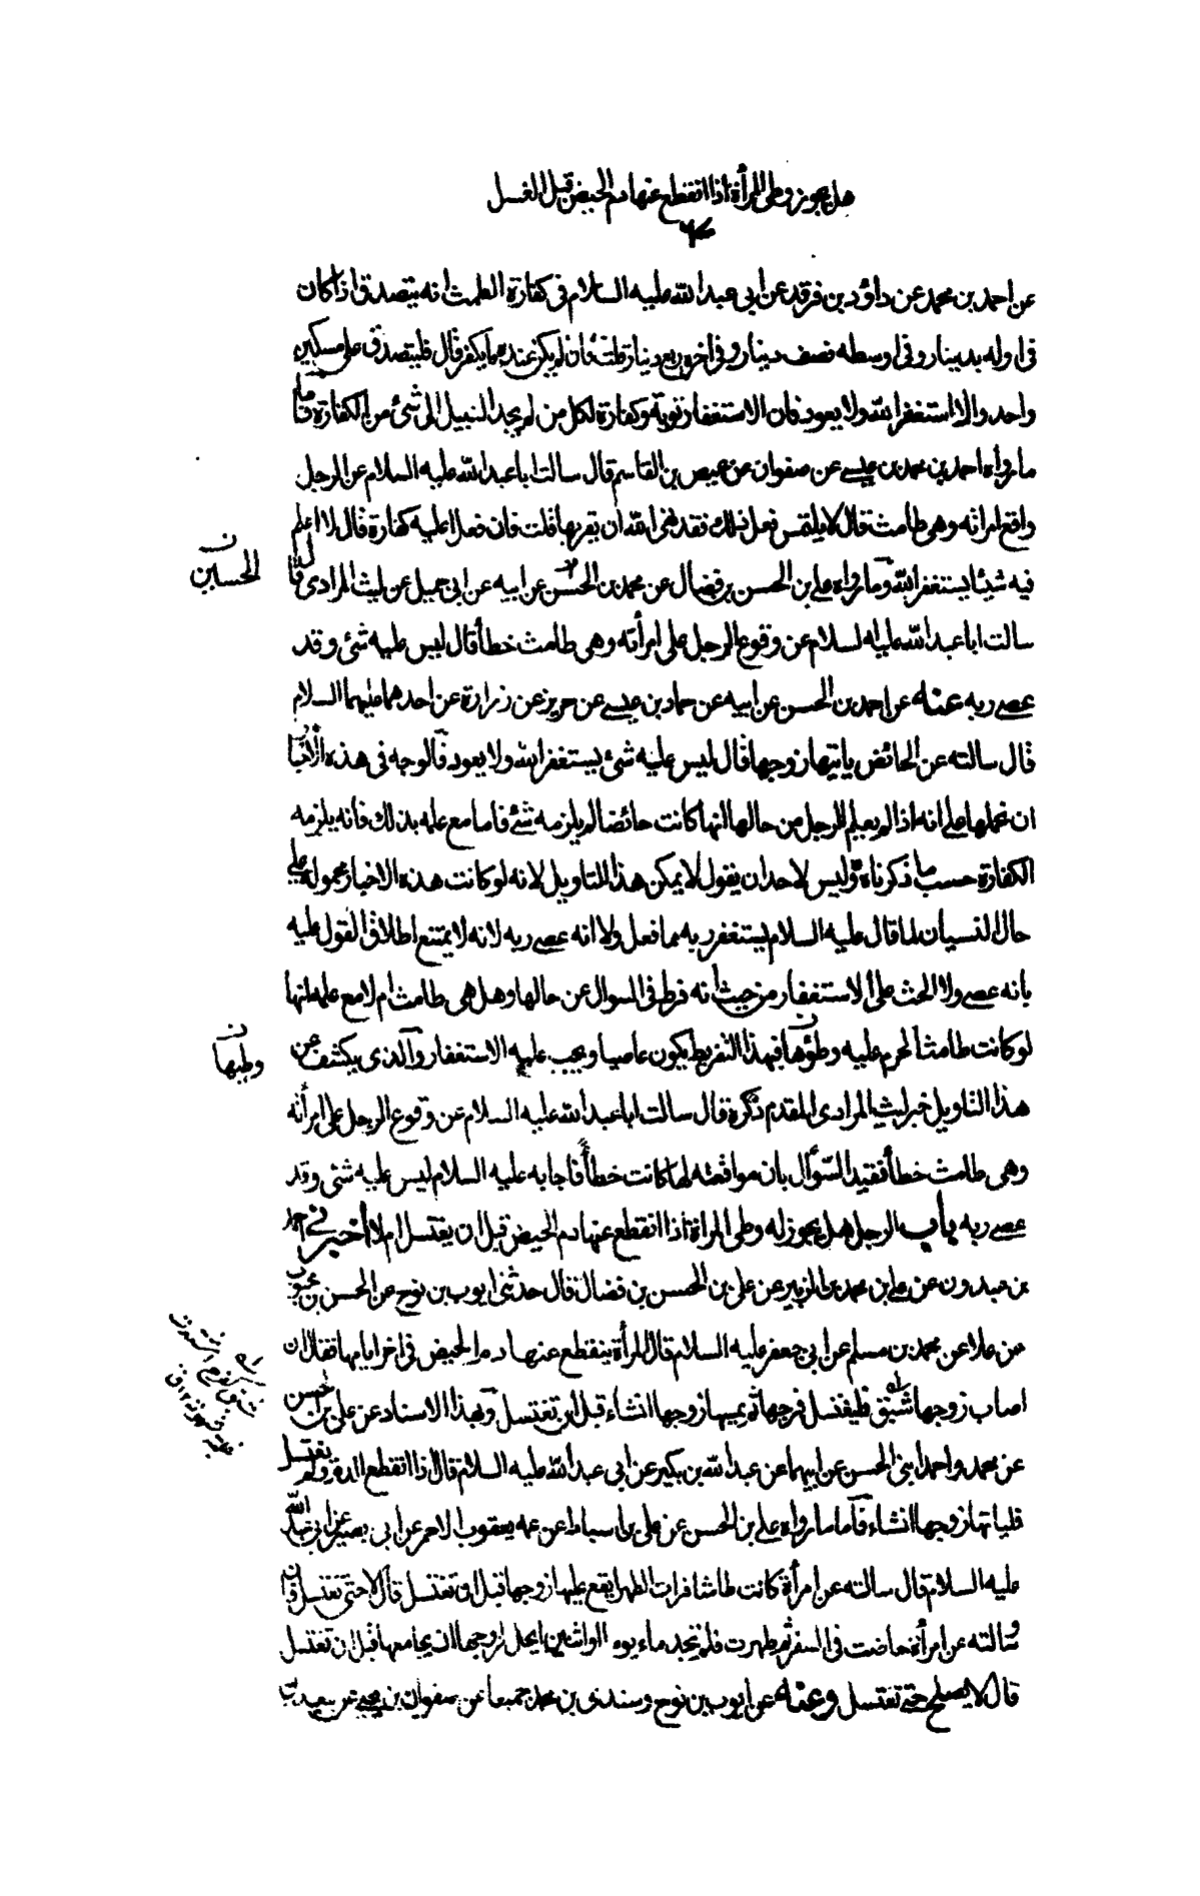 هل يجوز وطى المرأة اذا انقطع عنها دم الحيض قبل الغسل
عن احمد بن محمد عن داؤد بن فرقد عن ابى عبد الله عليه السلام فى كفارة الطمث انه يتصدق اذا كان
فى اوله بدينار وفى اوسطه نصف دينار وفى اخره ربع دينار قلت فان لم يكن عنده ما يكفر قال فليتصدق على مسكين
واحد والا استغفر الله ولا يعود فان الاستغفار توبة وكفارة لكل من لم يجد السبيل الى شئ من الكفارة فاما
ما رواه احمد بن محمد بن عيسى عن صفوان عن عيص بن القاسم قال سالت ابا عبد الله عليه السلام عن الرجل
واقع امراته وهى طامث قال لا يلتمس فعل ذلك فقد نهى الله ان يقربها قلت فان فعل اعليه كفارة قال لا اعلم
فيه شيئا يستغفر الله وما رواه على بن الحسن بن فضال عن محمد بن الحسن عن ابيه عن ابى جميل عن ليث المرادى قال
الحسين ن
سالت ابا عبد الله عليه السلام عن وقوع الرجل على امرأته وهى طامث خطأ قال ليس عليه شئ وقد
عصى ربه عنه عن احمد بن الحسن عن ابيه عن حماد بن عيسى عن حريز عن زرارة عن احدهما عليهما السلام
قال سالته عن الحائض ياتيها زوجها قال ليس عليه شئ يستغفر الله ولا يعود فالوجه فى هذه الاخبار
ان نحملها على انه اذا لم يعلم الرجل من حالها انها كانت حائضا لم يلزمه شئ فاما مع علمه بذلك فانه يلزمه
الكفارة حسب ما ذكرناه وليس لاحد ان يقول لا يمكن هذا التاويل لانه لو كانت هذه الاخبار محمولة على
حال النسيان لما قال عليه السلام يستغفر ربه مما فعل ولا انه عصى ربه لانه لا يمتنع اطلاق القول عليه
بانه عصى ولا الحث على الاستغفار من حيث انه فرط فى السوال عن حالها وهل هى طامث ام لا مع علمه انها
لو كانت طامثا لحرم عليه وطؤها فبهذا التفريط يكون عاصيا ويجب عليه الاستغفار والذى يكشف عن
وطيها ن
هذا التاويل خبر ليث المرادى المقدم ذكره قال سالت ابا عبد الله عليه السلام عن وقوع الرجل على امرأته
وهى طامث خطأ فقيد السؤال بان مواقعته لها كانت خطأ فاجابه عليه السلام ليس عليه شئ وقد
عصى ربه باب الرجل هل يجوز له وطى المراة اذا انقطع عنها دم الحيض قبل ان يغتسل ام لا اخبرنى احمد
بن عبدون عن على بن محمد بن الزبير عن على بن الحسن بن فضال قال حدثنى ايوب بن نوح عن الحسن بن محبوب
عن علا عن محمد بن مسلم عن ابى جعفر عليه السلام قال المرأة ينقطع عنها دم الحيض فى اخر ايامها فقال ان
اصاب زوجها شبق فليغتسل فرجها ثم يمسها زوجها انشاء قبل ان تغتسل وبهذا الاسناد عن على بن الحسن
عن محمد واحمد ابنى الحسن عن ابيهما عن عبد الله بن بكير عن ابى عبد الله عليه السلام قال اذا انقطع الدم ولم يغتسل
فلياتها زوجها انشاء فاما ما رواه على بن الحسن عن على بن اسباط عن عمه يعقوب الاحمر عن ابى بصير عن ابى عبد الله
عليه السلام قال سالته عن امرأة كانت طامثا فرات الطهر ايقع عليها زوجها قبل ان تغتسل قال لا حتى تغتسل قال
وسالته عن امرأة حاضت فى السفر ثم طهرت فلم تجد ماء يوما او اثنين ايحل لزوجها ان يجامعها قبل ان تغتسل
قال لا يصلح حتى تغتسل وعنه عن ايوب بن نوح وسندى بن محمد جميعا عن صفوان بن يحيى عن سعيد بن